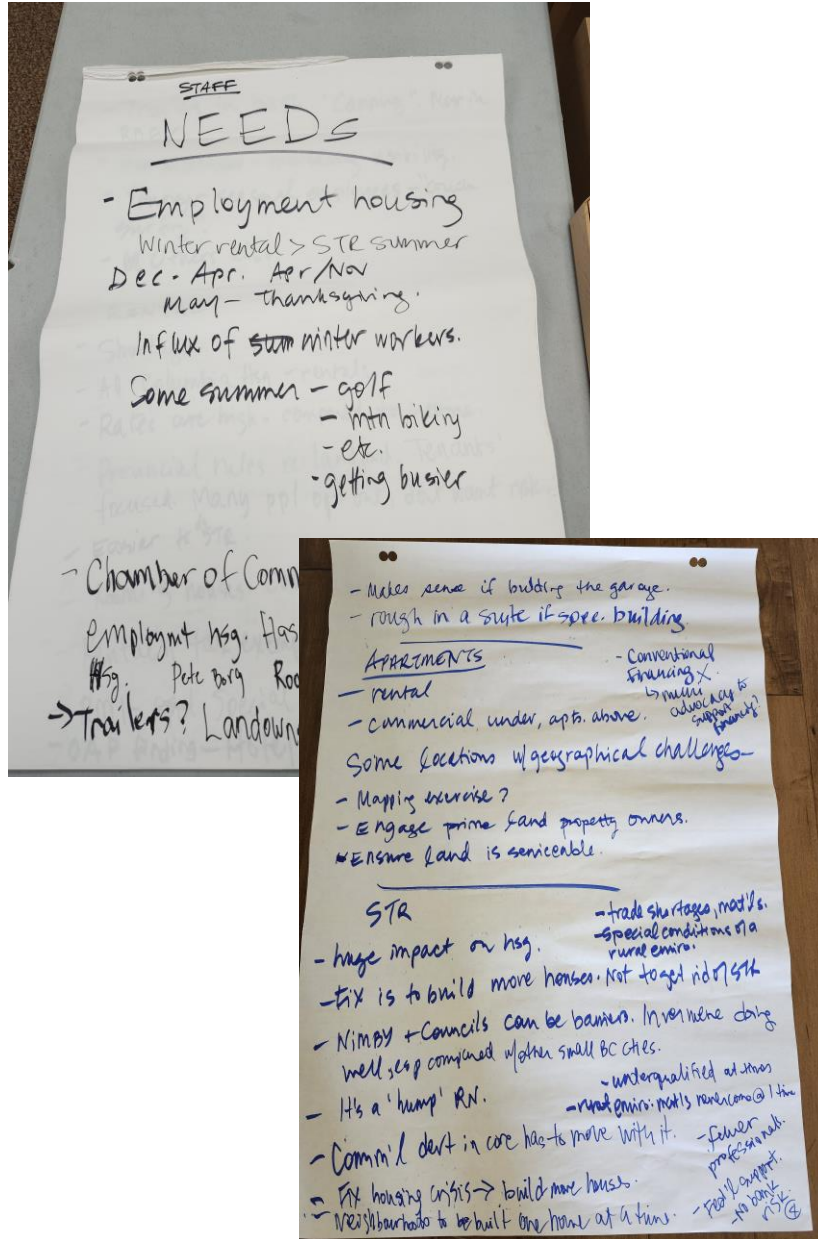 STAFF
NEEDS
- Employment housing
Winter rental > STR summer
Dec - Apr. Apr/Nov
May - Thanksgiving.
Influx of sum winter workers.
Some summer - golf
- mtn biking
- etc.
- getting busier
- Chamber of Comm
employmt hsg. Has
Hsg. Pete Borg Roc
-> Trailers? Landown
- Makes sense if building the garage.
- rough in a suite if spec. building
APARTMENTS
- rental
- commercial under, apts. above.
- Conventional
Financing X
↳ muni
advocacy to
support
financing?
Some locations w/geographical challenges -
- Mapping exercise?
- Engage prime land property owners.
- Ensure land is serviceable.
STR
- trade shortages, mat'ls.
- special conditions of a
rural enviro.
- huge impact on hsg.
- Fix is to build more houses. Not to get rid of STR
- NIMBY + Councils can be barriers. Invermere doing
well, esp compared w/other small BC cities.
- underqualified at times
- rural enviro: mat'ls never come @ 1 time
- It's a 'hump' RN.
- Comm'l devt in core has to move with it.
- fewer
professionals.
- Fix housing crisis -> build more houses.
- Neighbourhoods to be built one home at a time.
- Fed'l support.
- No bank
risk.